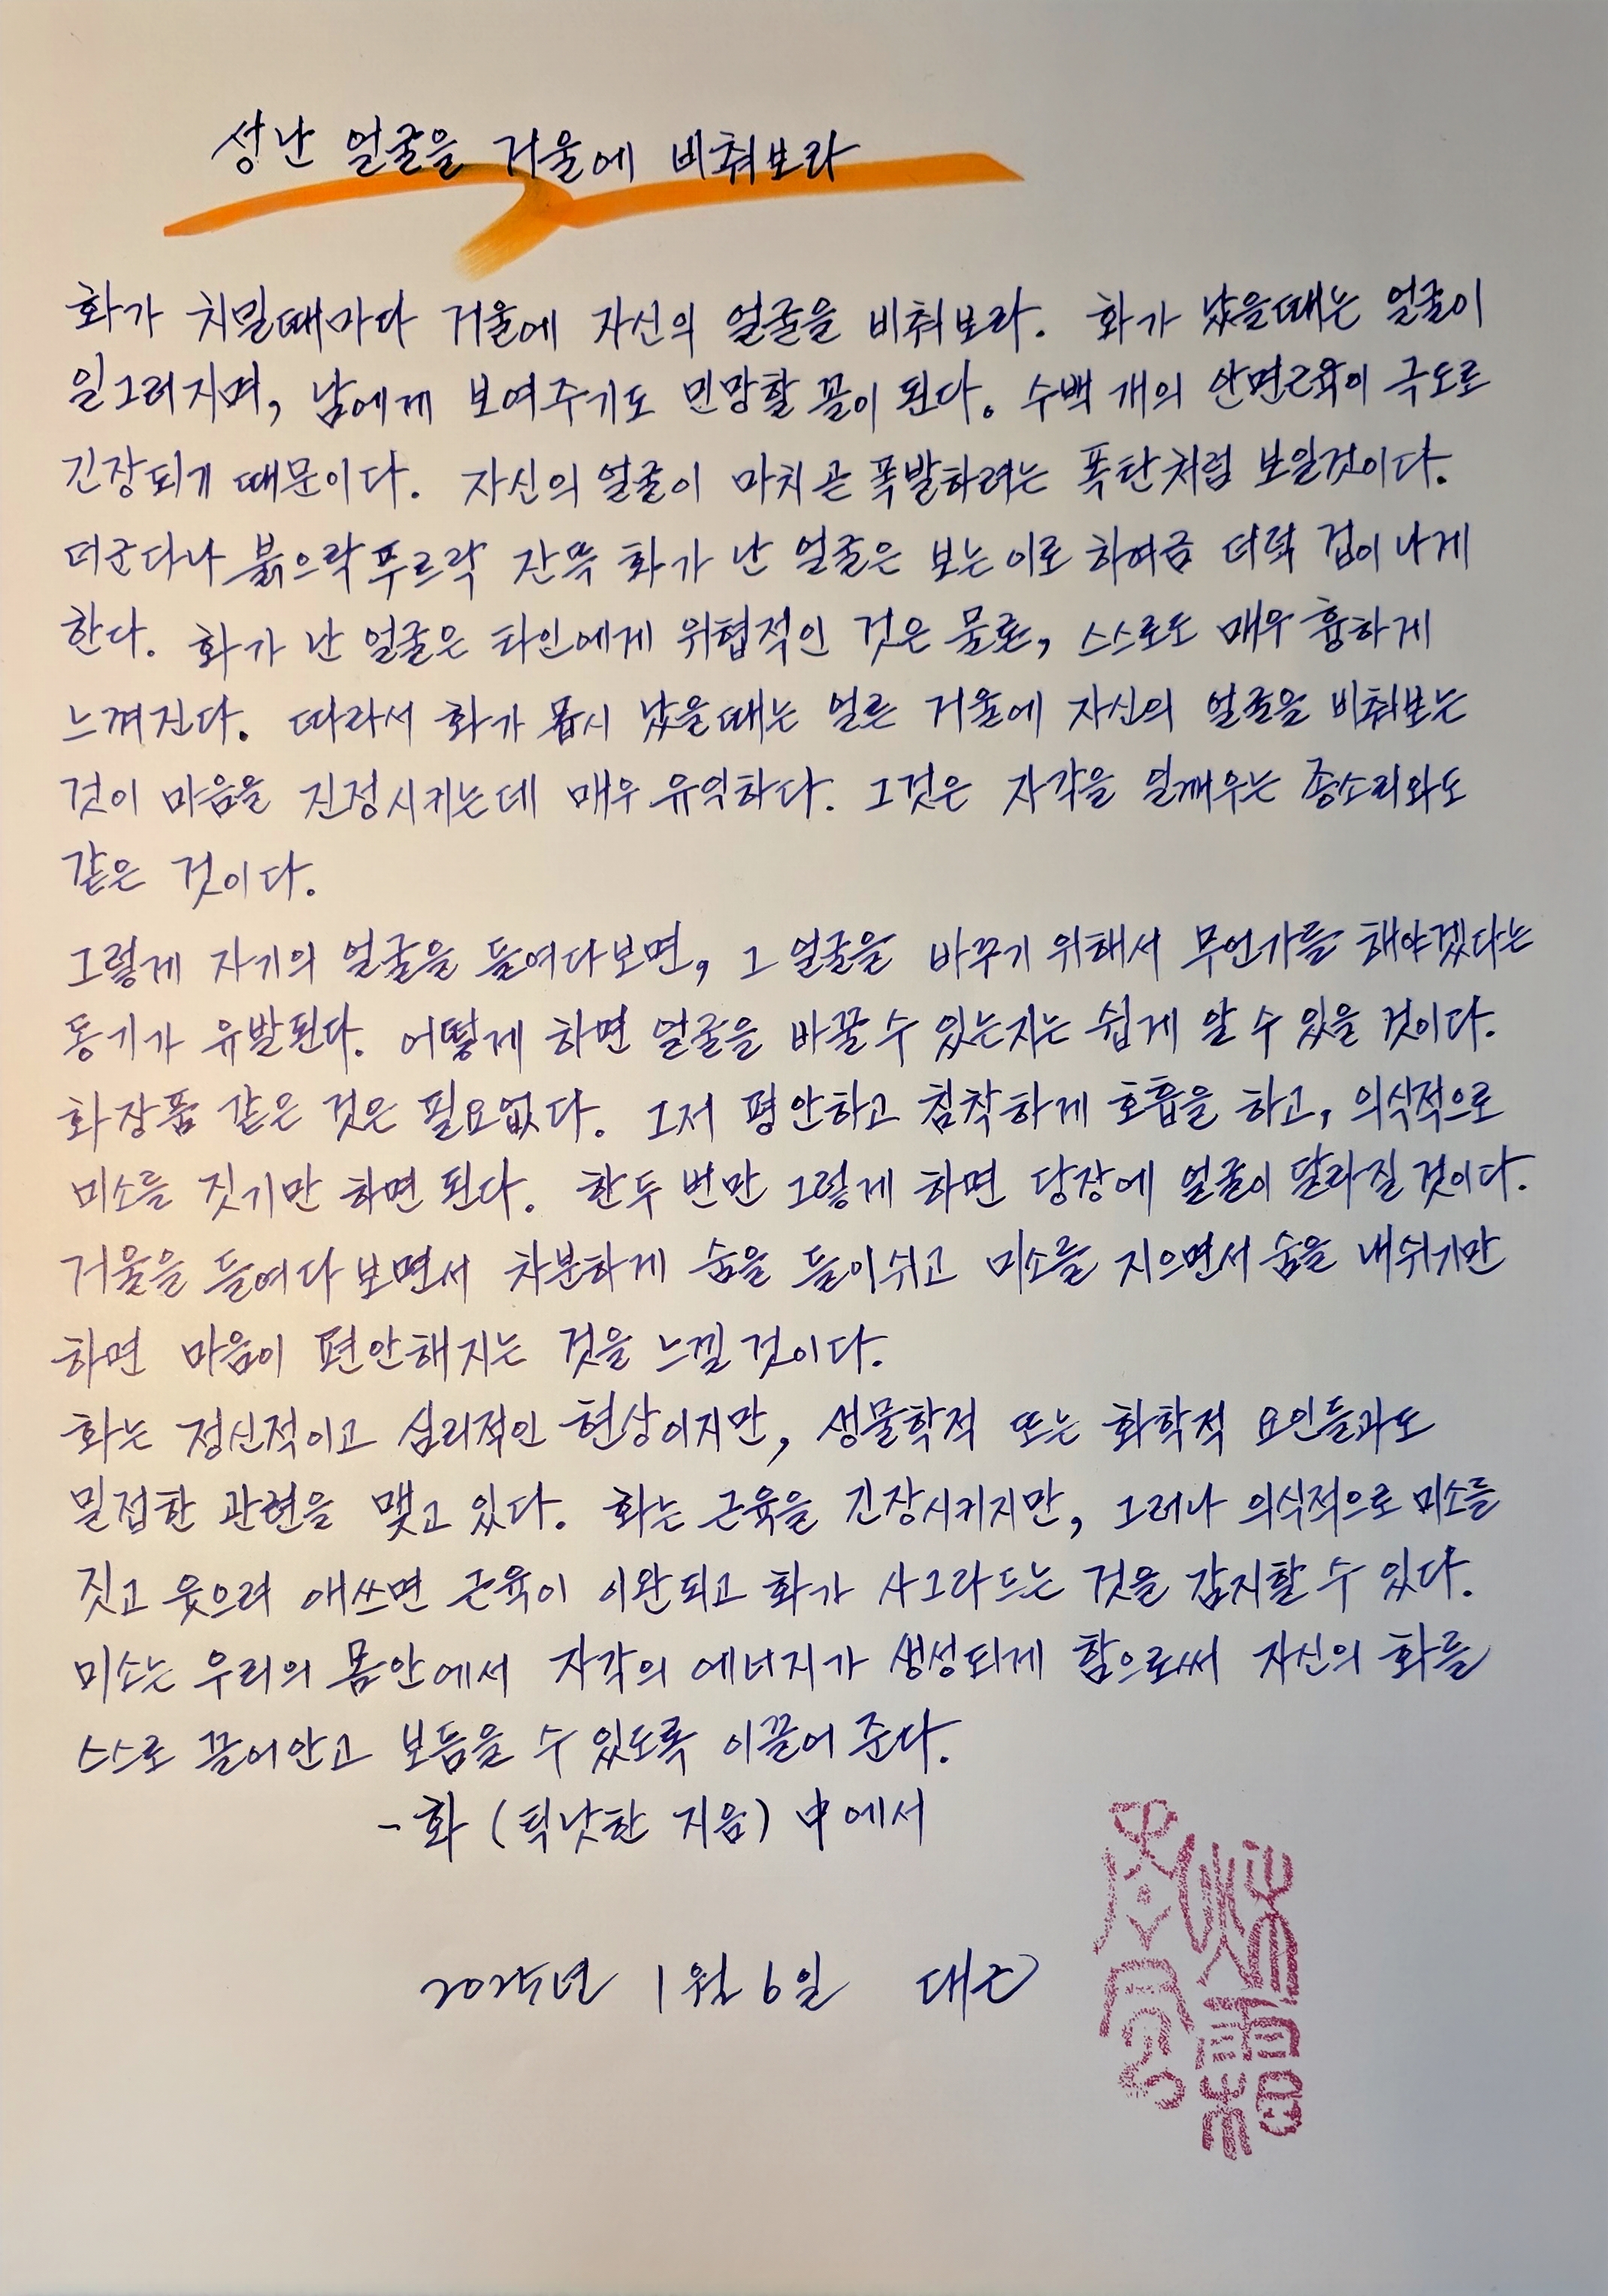 성난 얼굴을 거울에 비춰보라
화가 치밀때마다 거울에 자신의 얼굴을 비춰보라. 화가 났을때는 얼굴이
일그러지며, 남에게 보여주기도 민망할 꼴이 된다. 수백 개의 안면근육이 극도로
긴장되기 때문이다. 자신의 얼굴이 마치 곧 폭발하려는 폭탄처럼 보일것이다.
더군다나 붉으락푸르락 잔뜩 화가 난 얼굴은 보는이로 하여금 더럭 겁이나게
한다. 화가 난 얼굴은 타인에게 위협적인 것은 물론, 스스로도 매우 흉하게
느껴진다. 따라서 화가 몹시 났을때는 얼른 거울에 자신의 얼굴을 비춰보는
것이 마음을 진정시키는데 매우 유익하다. 그것은 자각을 일깨우는 종소리와도
같은 것이다.
그렇게 자기의 얼굴을 들여다보면, 그 얼굴을 바꾸기 위해서 무언가를 해야겠다는
동기가 유발된다. 어떻게 하면 얼굴을 바꿀수 있는지는 쉽게 알 수 있을 것이다.
화장품 같은 것은 필요없다. 그저 평안하고 침착하게 호흡을 하고, 의식적으로
미소를 짓기만 하면 된다. 한두 번만 그렇게 하면 당장에 얼굴이 달라질 것이다.
거울을 들여다 보면서 차분하게 숨을 들이쉬고 미소를 지으면서 숨을 내쉬기만
하면 마음이 편안해지는 것을 느낄 것이다.
화는 정신적이고 심리적인 현상이지만, 생물학적 또는 화학적 요인들과도
밀접한 관련을 맺고 있다. 화는 근육을 긴장시키지만, 그러나 의식적으로 미소를
짓고 웃으려 애쓰면 근육이 이완되고 화가 사그라드는 것을 감지할 수 있다.
미소는 우리의 몸안에서 자각의 에너지가 생성되게 함으로써 자신의 화를
스스로 끌어안고 보듬을 수 있도록 이끌어 준다.
-화 (틱낫한 지음) 中에서
2025년 1월 6일 대근